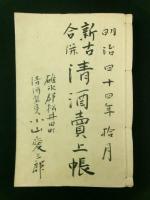 明治四十四年拾月
新古
合併
清酒賣上帳
碓氷郡松井田町
清酒製造
小山愛三郎